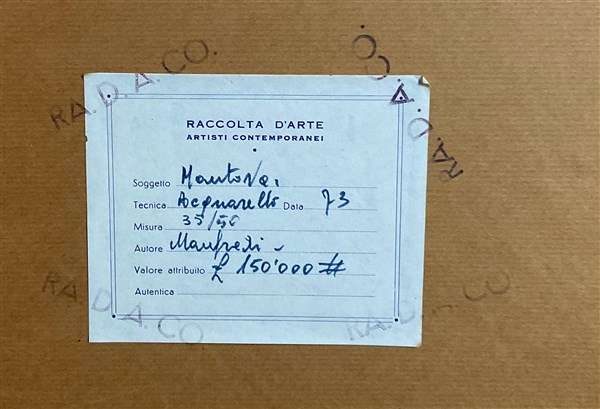 RA.D.A.CO.
RA.D.A.CO.
RACCOLTA D'ARTE
ARTISTI CONTEMPORANEI
Soggetto Mantova.
Tecnica Acquarello Data 73
Misura 35/50
Autore Manfredi
Valore attribuito £ 150'000 #
Autentica
RA.D.A.CO.
RA.D.A.CO